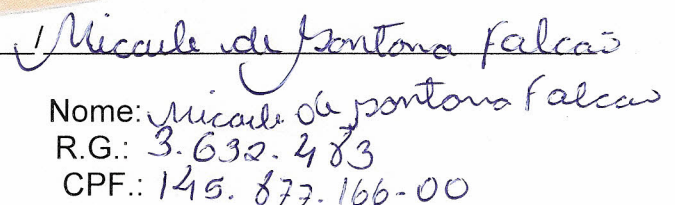 Micaele de Santana Falcão
Nome: Micaele de Santana Falcao
R.G.: 3.632.483
CPF.: 145.877.166-00